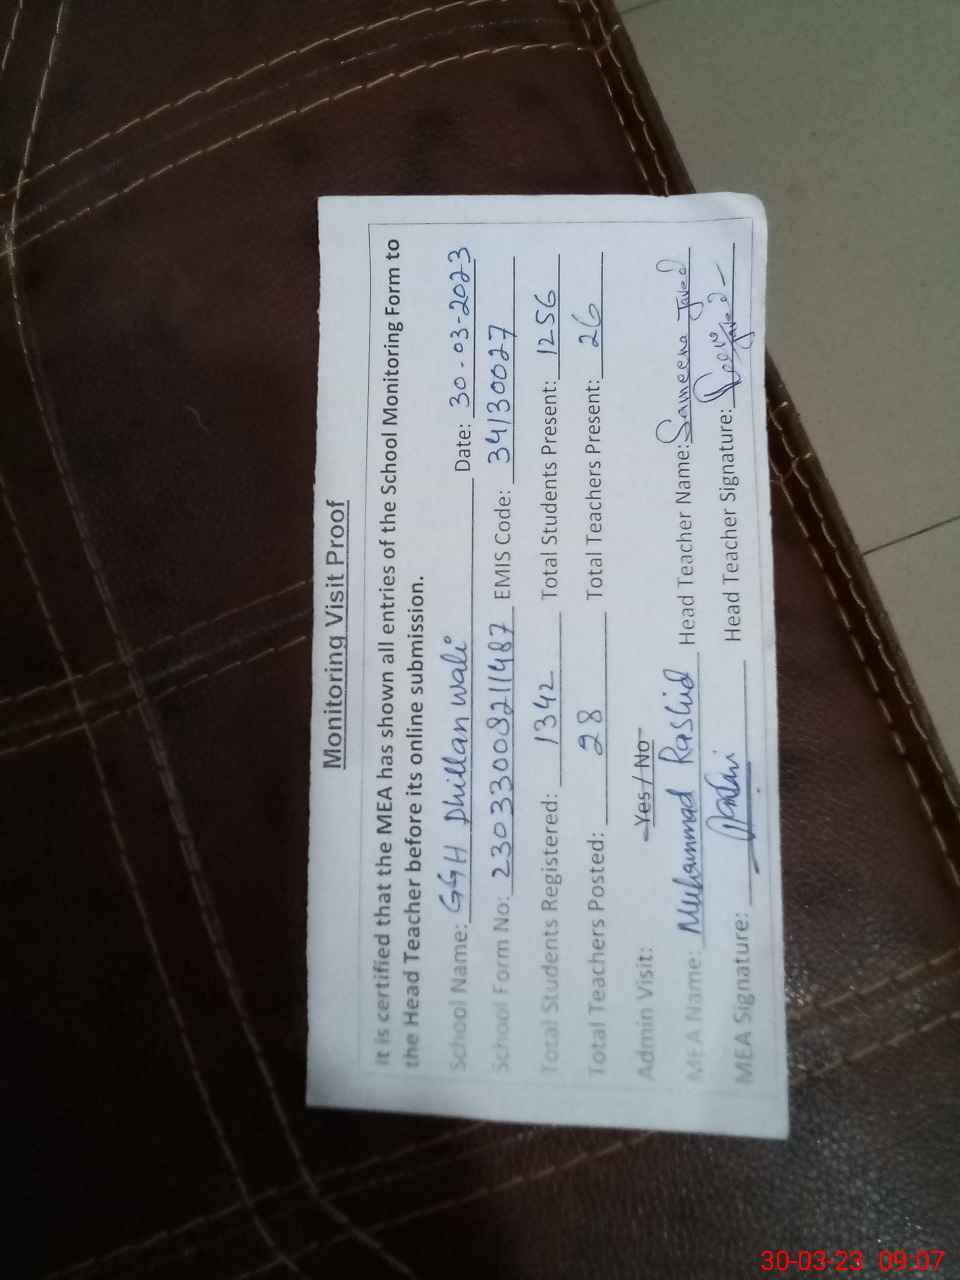 Monitoring Visit Proof
It is certified that the MEA has shown all entries of the School Monitoring Form to
the Head Teacher before its online submission.
School Name: GGH Dhillan wali Date: 30-03-2023
School Form No: 23033008211487 EMIS Code: 34130027
Total Students Registered: 1342 Total Students Present: 1256
Total Teachers Posted: 28 Total Teachers Present: 26
Admin Visit: Yes / No
MEA Name: Muhammad Rashid Head Teacher Name: Sameena Javed
MEA Signature: Head Teacher Signature:
30-03-23 09:07